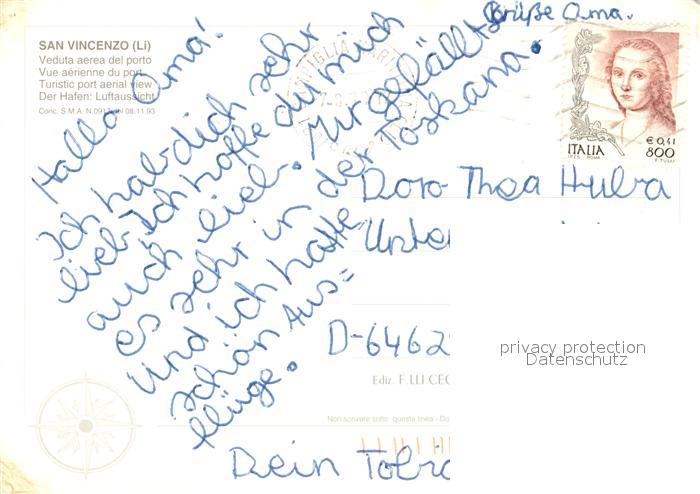 SAN VINCENZO (Li)
Veduta aerea del porto
Vue aérienne du port
Turistic port aerial view
Der Hafen: Luftaussicht
Conc. S.M.A. N.0917 del 08.11.93
Hallo Oma!
Ich hab dich sehr
lieb. Ich hoffe du mich
auch lieb. Mir gefällts
es sehr in der Toskana.
Und ich hatte
schön Aus=
flüge.
Grüße Oma.
Dein
ITALIA
€ 0,41
800
I.P.Z.S. ROMA
Doro Thea Hulva
Unte
D-6462
privacy protection
Datenschutz
Ediz. F.LLI CEC
Non scrivere sotto questa linea - Do